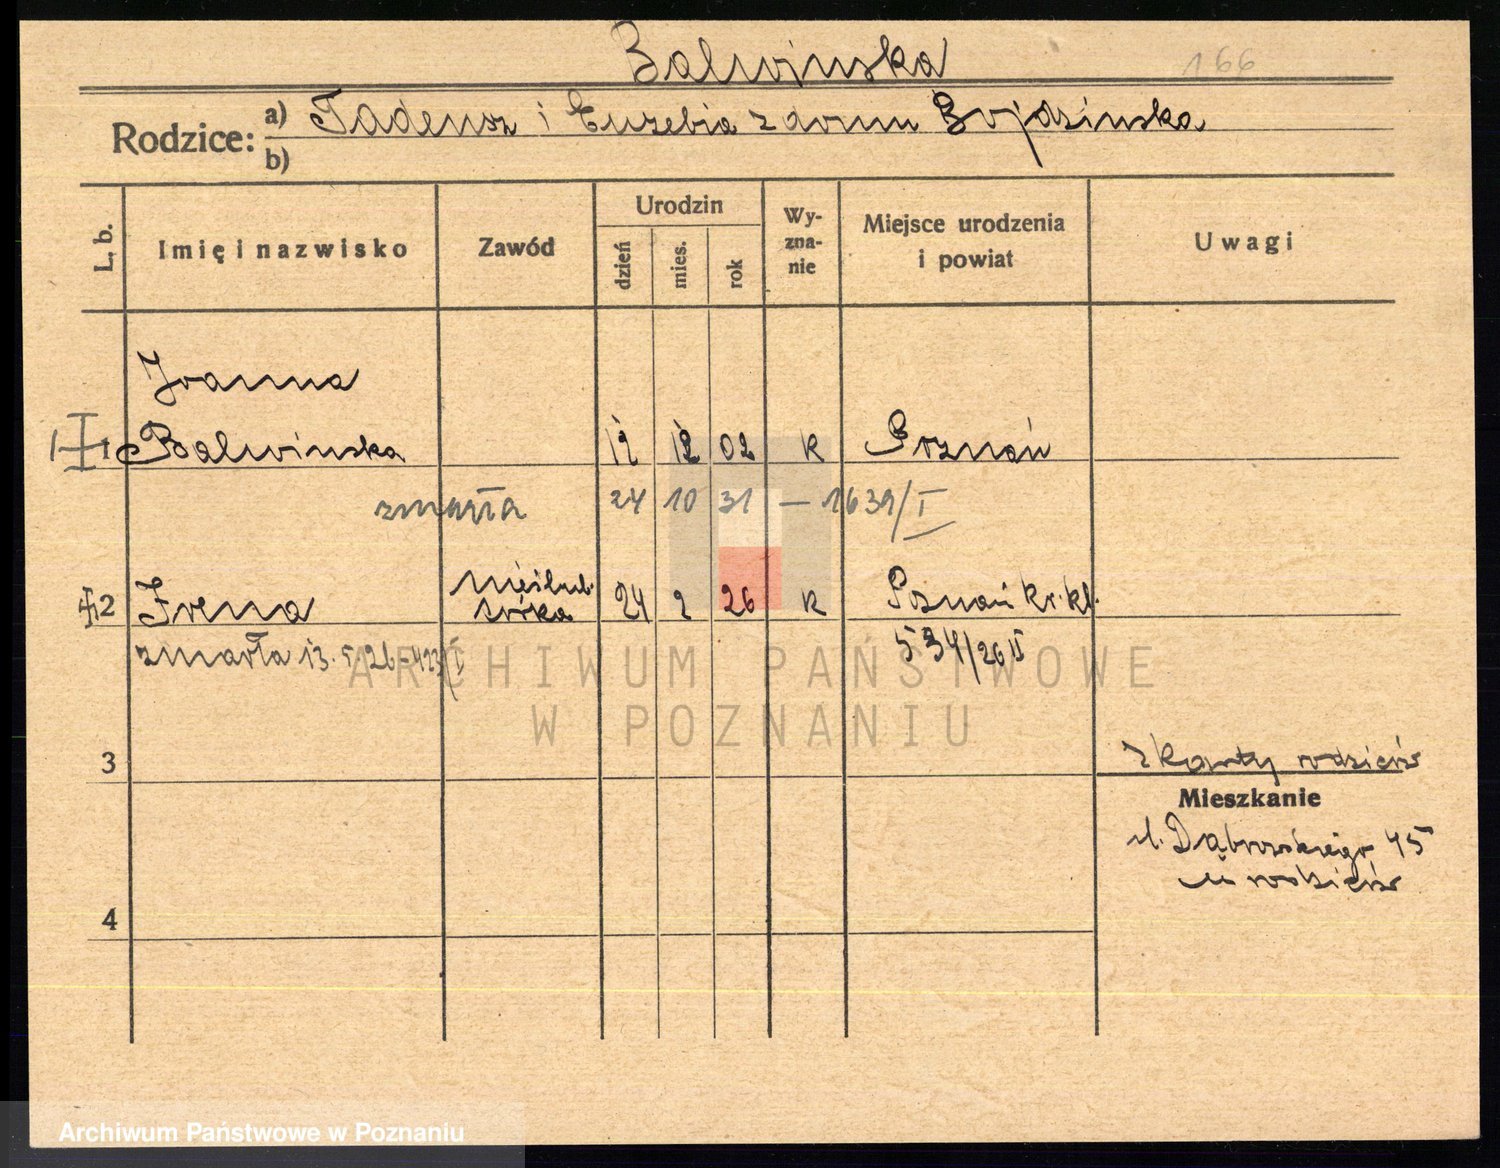 Balwinska 166
Rodzice: a) Tadeusz i Euzebia z domu Gojdzinska
b)
L. b. Imię i nazwisko Zawód Urodzin dzień mies. rok Wy-zna-nie Miejsce urodzenia i powiat Uwagi
Joanna
1 Balwinska 12 12 02 K Poznań
zmarła 24 10 31 — 1639/I
2 Irena nieślub. córka 24 2 26 K Poznań kr. kl.
zmarła 13. 5. 26 - 423/I 534/26 II
ARCHIWUM PAŃSTWOWE
W POZNANIU
3
z karty rodziców
Mieszkanie
ul. Dąbrowskiego 45
u rodziców
4
Archiwum Państwowe w Poznaniu